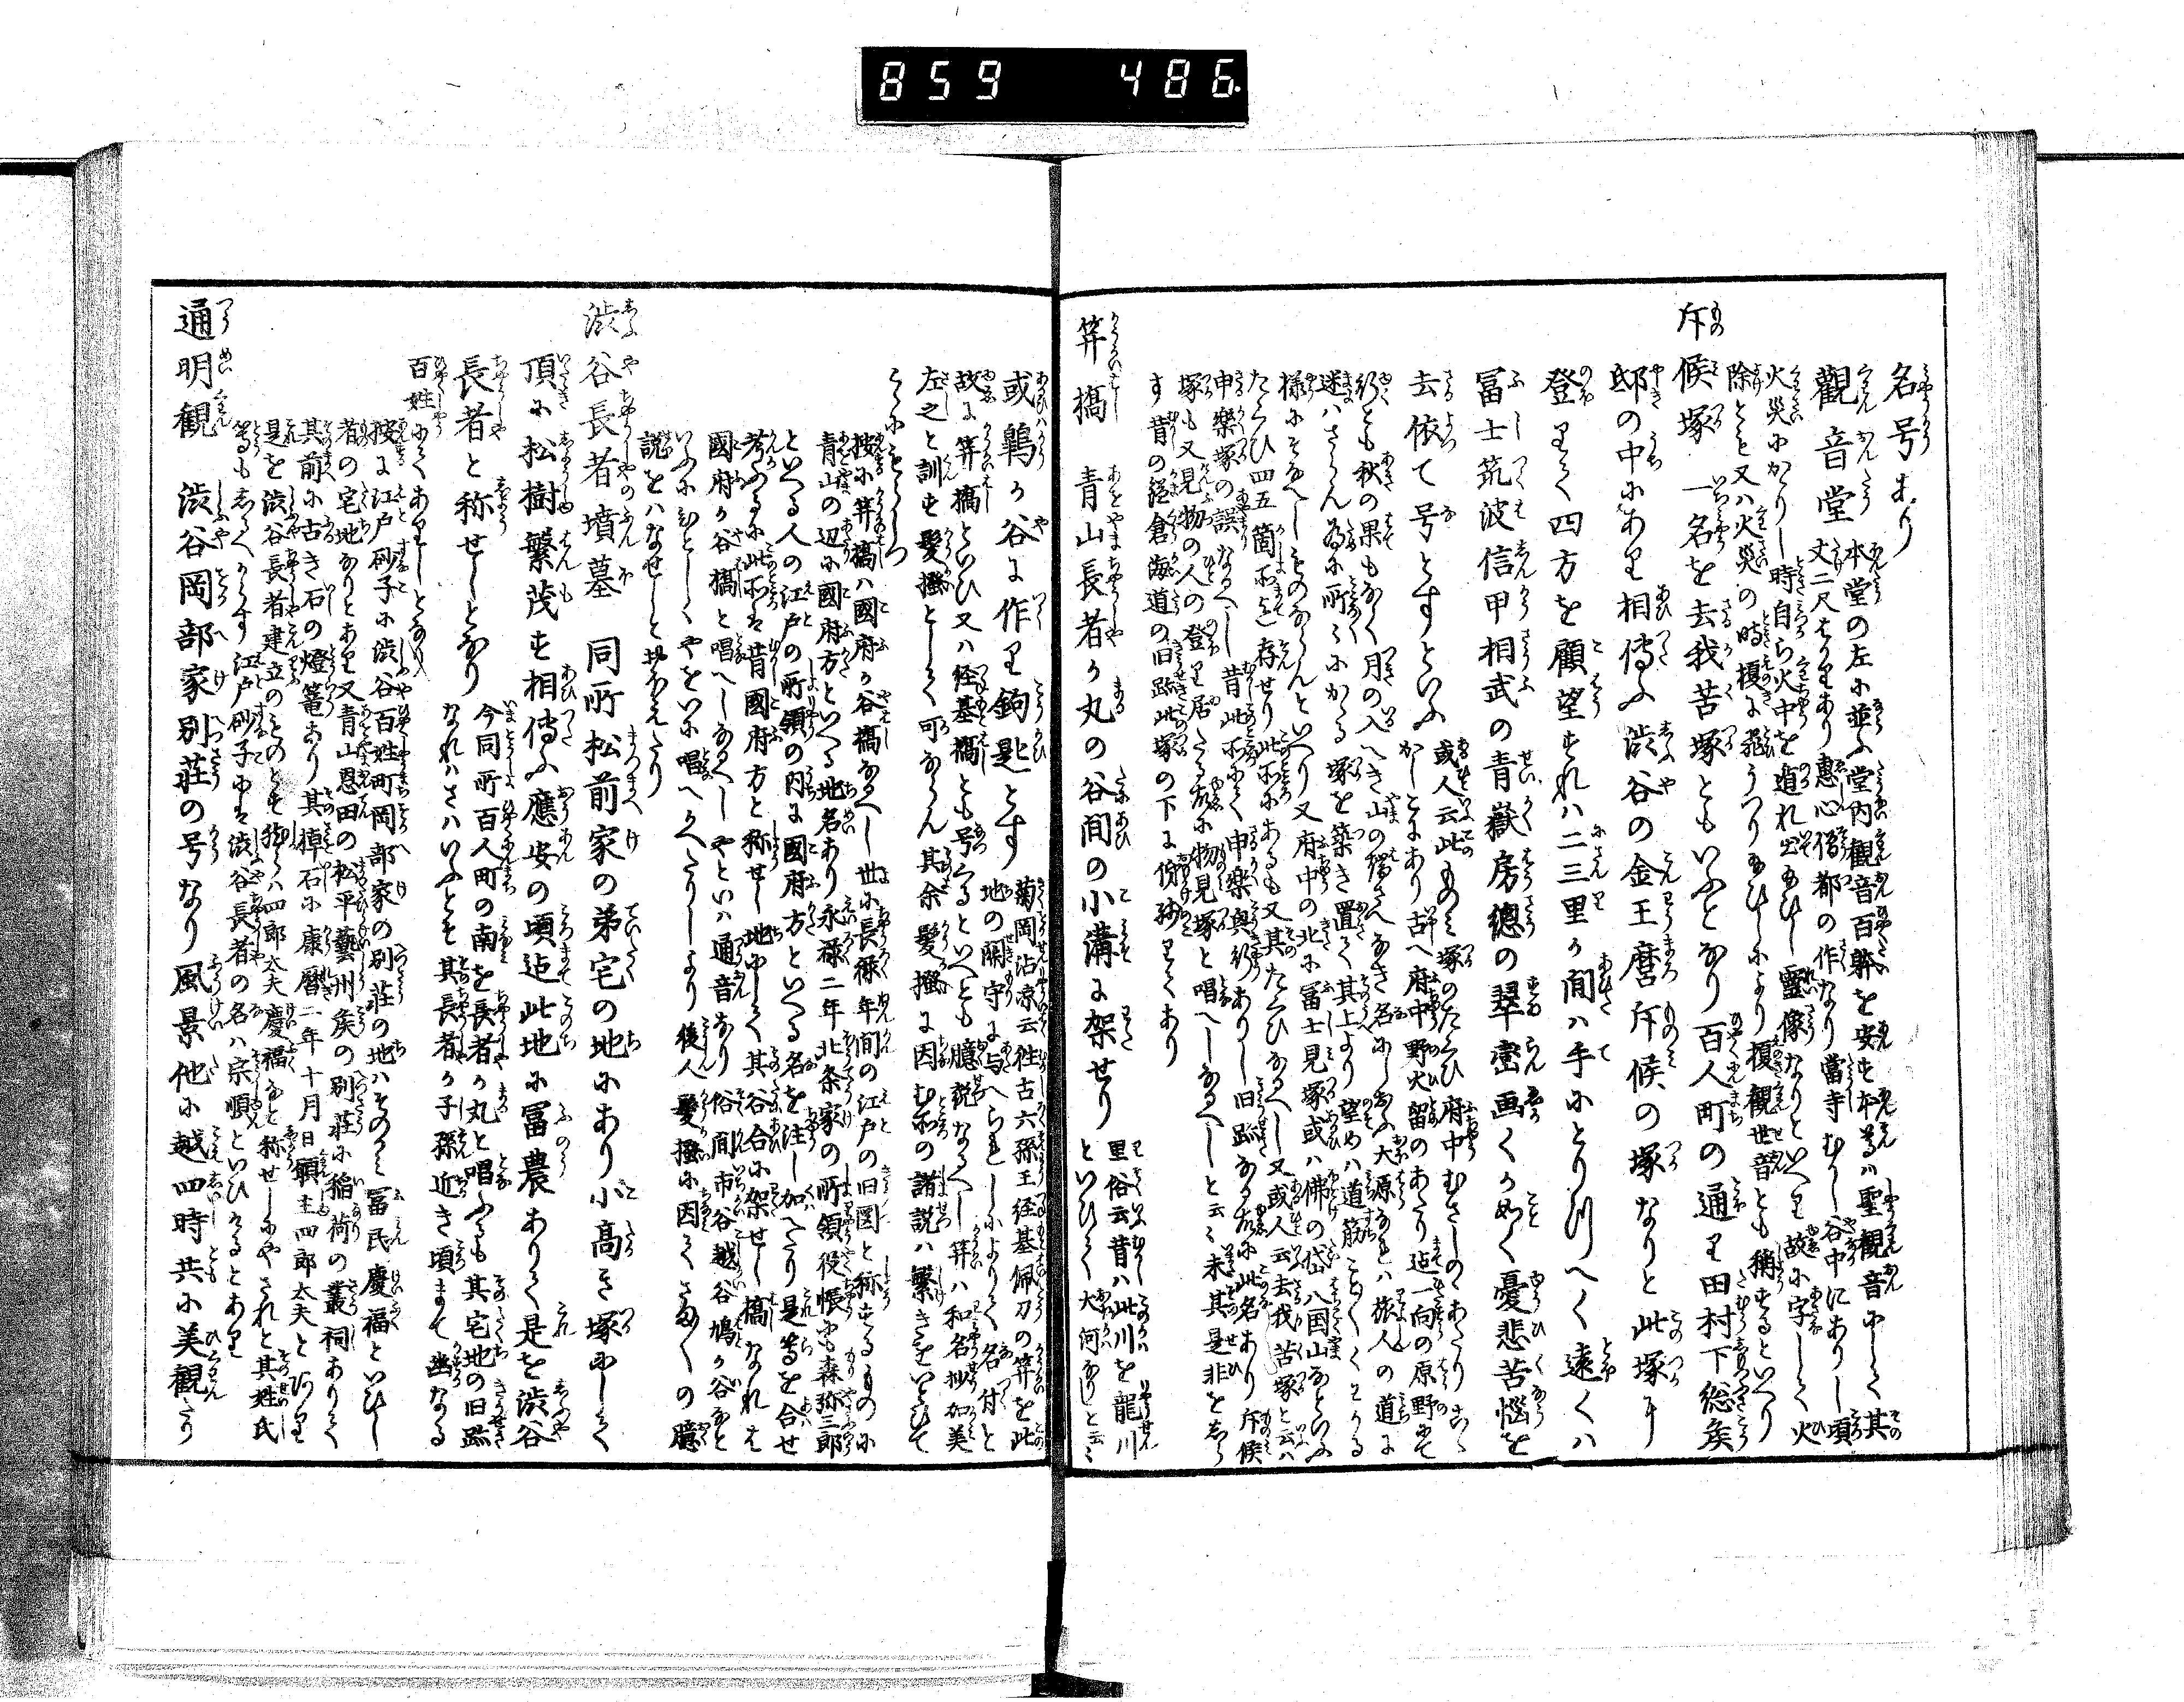 859 486
名号あり
觀音堂 本堂の左に並ふ堂内観音百躰を安す本尊ハ聖観音にして其
丈二尺はかりあり惠心僧都の作なり當寺むかし谷中にありし頃
火災にかゝりし時自ら火中を遁れ出給ひし靈像なりといへり故に字して火
除とも又ハ火災の時榎に飛うつり給ひしにより榎観世音とも稱するといへり
斥候塚 一名を去我苦塚ともいふとなり百人町の通り田村下総矦
邸の中にあり相傳ふ渋谷の金王麿斥候の塚なりと此塚に
登りて四方を顧望すれハ二三里か間ハ手にとりつへく遠くハ
冨士筑波信甲相武の青嶽房總の翠巒画くか如く憂悲苦惱を
去依て号とすといふ 或人云此ものミ塚のたくひ府中むさしのゝあたりこゝ
かしこにあり古へ府中野火留のあたり迄一向の原野にて
行とも秋の果もなく月の入へき山の端さへなき名にしおふ大原なれハ旅人の道に
迷ハさらん為に所々にかゝる塚を築き置て其上より望めハ道筋ことことくわかる
様にそなへしものならんといへり又府中の北に冨士見塚或ハ佛の岱八国山なといふ
たくひ四五箇所迄存せり此所にあるも又其たくひなるへし又或人云去我苦塚と云ハ
申樂塚の誤なるへし昔此所にて申樂興行ありし旧跡なる故に此名あり斥候
塚も又見物の人の登り居たる故に物見塚と唱へしなるへしと云々未其是非をしら
す昔の鎌倉海道の旧跡此塚の下に傍ひてあり
笄橋 青山長者か丸の谷間の小溝に架せり 里俗云昔ハ此川を龍川
といひて大河なりしと云々
或鶉か谷に作り鉤匙とす 菊岡沾凉云往古六孫王経基佩刀の笄を此
地の関守に与へられしによりて名付と
故に笄橋といひ又ハ経基橋とも号くるといへとも臆説なるへし笄ハ和名抄加美
左之と訓す髪掻として可ならん其余髪掻に因む所の諸説ハ繁きをいとひて
こゝにもらしつ
按に笄橋ハ國府か谷橋なるへし世に長禄年間の江戸の旧図と称するものに
青山の辺に國府方といへる地名あり永禄二年北条家の所領役帳にも森弥三郎
といへる人の江戸の所領の内に國府方といへる名を注し加へたり是等を合せ
考ふるに此所は昔國府方と称せし地にして其谷合に架せし橋なれは
國府か谷橋と唱へしなるへしやといハ通音なり俗間市谷越谷鳩か谷なと
いふにひとしくやをいに唱へかへたりしより後人髪掻に因てさまさまの臆
説をハなせしとおほえたり
渋谷長者墳墓 同所松前家の弟宅の地にあり小高き塚にして
頂に松樹繁茂す相傳ふ應安の頃迄此地に冨農ありて是を渋谷
長者と称せしとなり 今同所百人町の南を長者か丸と唱ふるも其宅地の旧跡
なれハさハいふとそ其長者か子孫近き頃まて幽なる
百姓にてありしとなり
按に江戸砂子に渋谷百姓町岡部家の別荘の地ハそのかミ冨民慶福といひし
者の宅地なりとあり又青山恩田の松平藝州矦の別荘に稲荷の叢祠ありて
其前に古き石の燈篭あり其棹石に康暦二年十月日願主四郎太夫とあり
是を渋谷長者建立のものとす彼ハ四郎太夫慶福なと称せしにやされと其姓氏
等もしるへからす江戸砂子にも渋谷長者の名ハ宗順といひけるとあり
通明観 渋谷岡部家別荘の号なり風景他に越四時共に美観たり